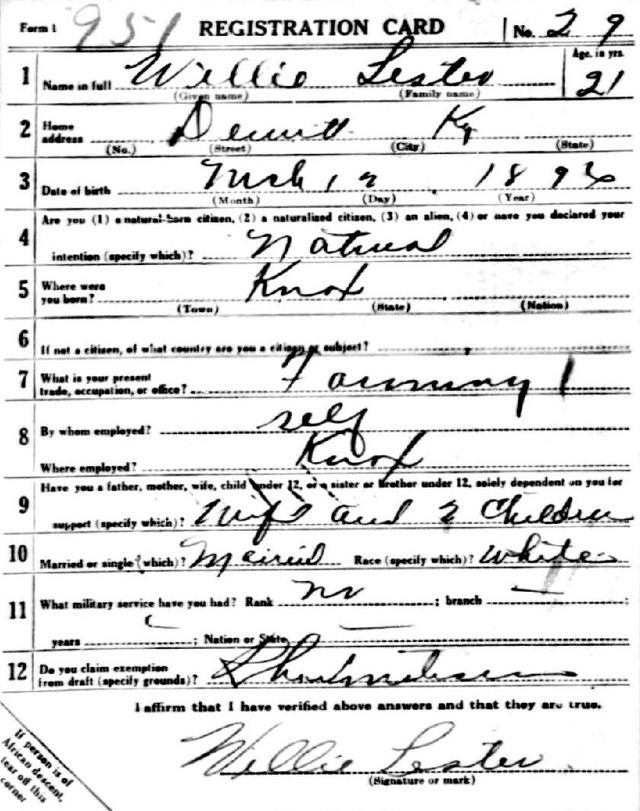 Form 1 951 REGISTRATION CARD No. 29
1 Name in full Willie Lester Age, in yrs. 21
(Given name) (Family name)
2 Home address Dewitt Ky
(No.) (Street) (City) (State)
3 Date of birth Mch 12 1896
(Month) (Day) (Year)
4 Are you (1) a natural-born citizen, (2) a naturalized citizen, (3) an alien, (4) or have you declared your
intention (specify which)? Natural
5 Where were you born? Knox
(Town) (State) (Nation)
6 If not a citizen, of what country are you a citizen or subject?
7 What is your present trade, occupation, or office? Farming 1
8 By whom employed? self
Where employed? Knox
9 Have you a father, mother, wife, child under 12, or a sister or brother under 12, solely dependent on you for
support (specify which)? Wife and 2 Children
10 Married or single (which)? Married Race (specify which)? White
11 What military service have you had? Rank no ; branch — ;
years ; Nation or State —
12 Do you claim exemption from draft (specify grounds)?
I affirm that I have verified above answers and that they are true.
Willie Lester
(Signature or mark)
If person is of
African descent,
tear off this
corner